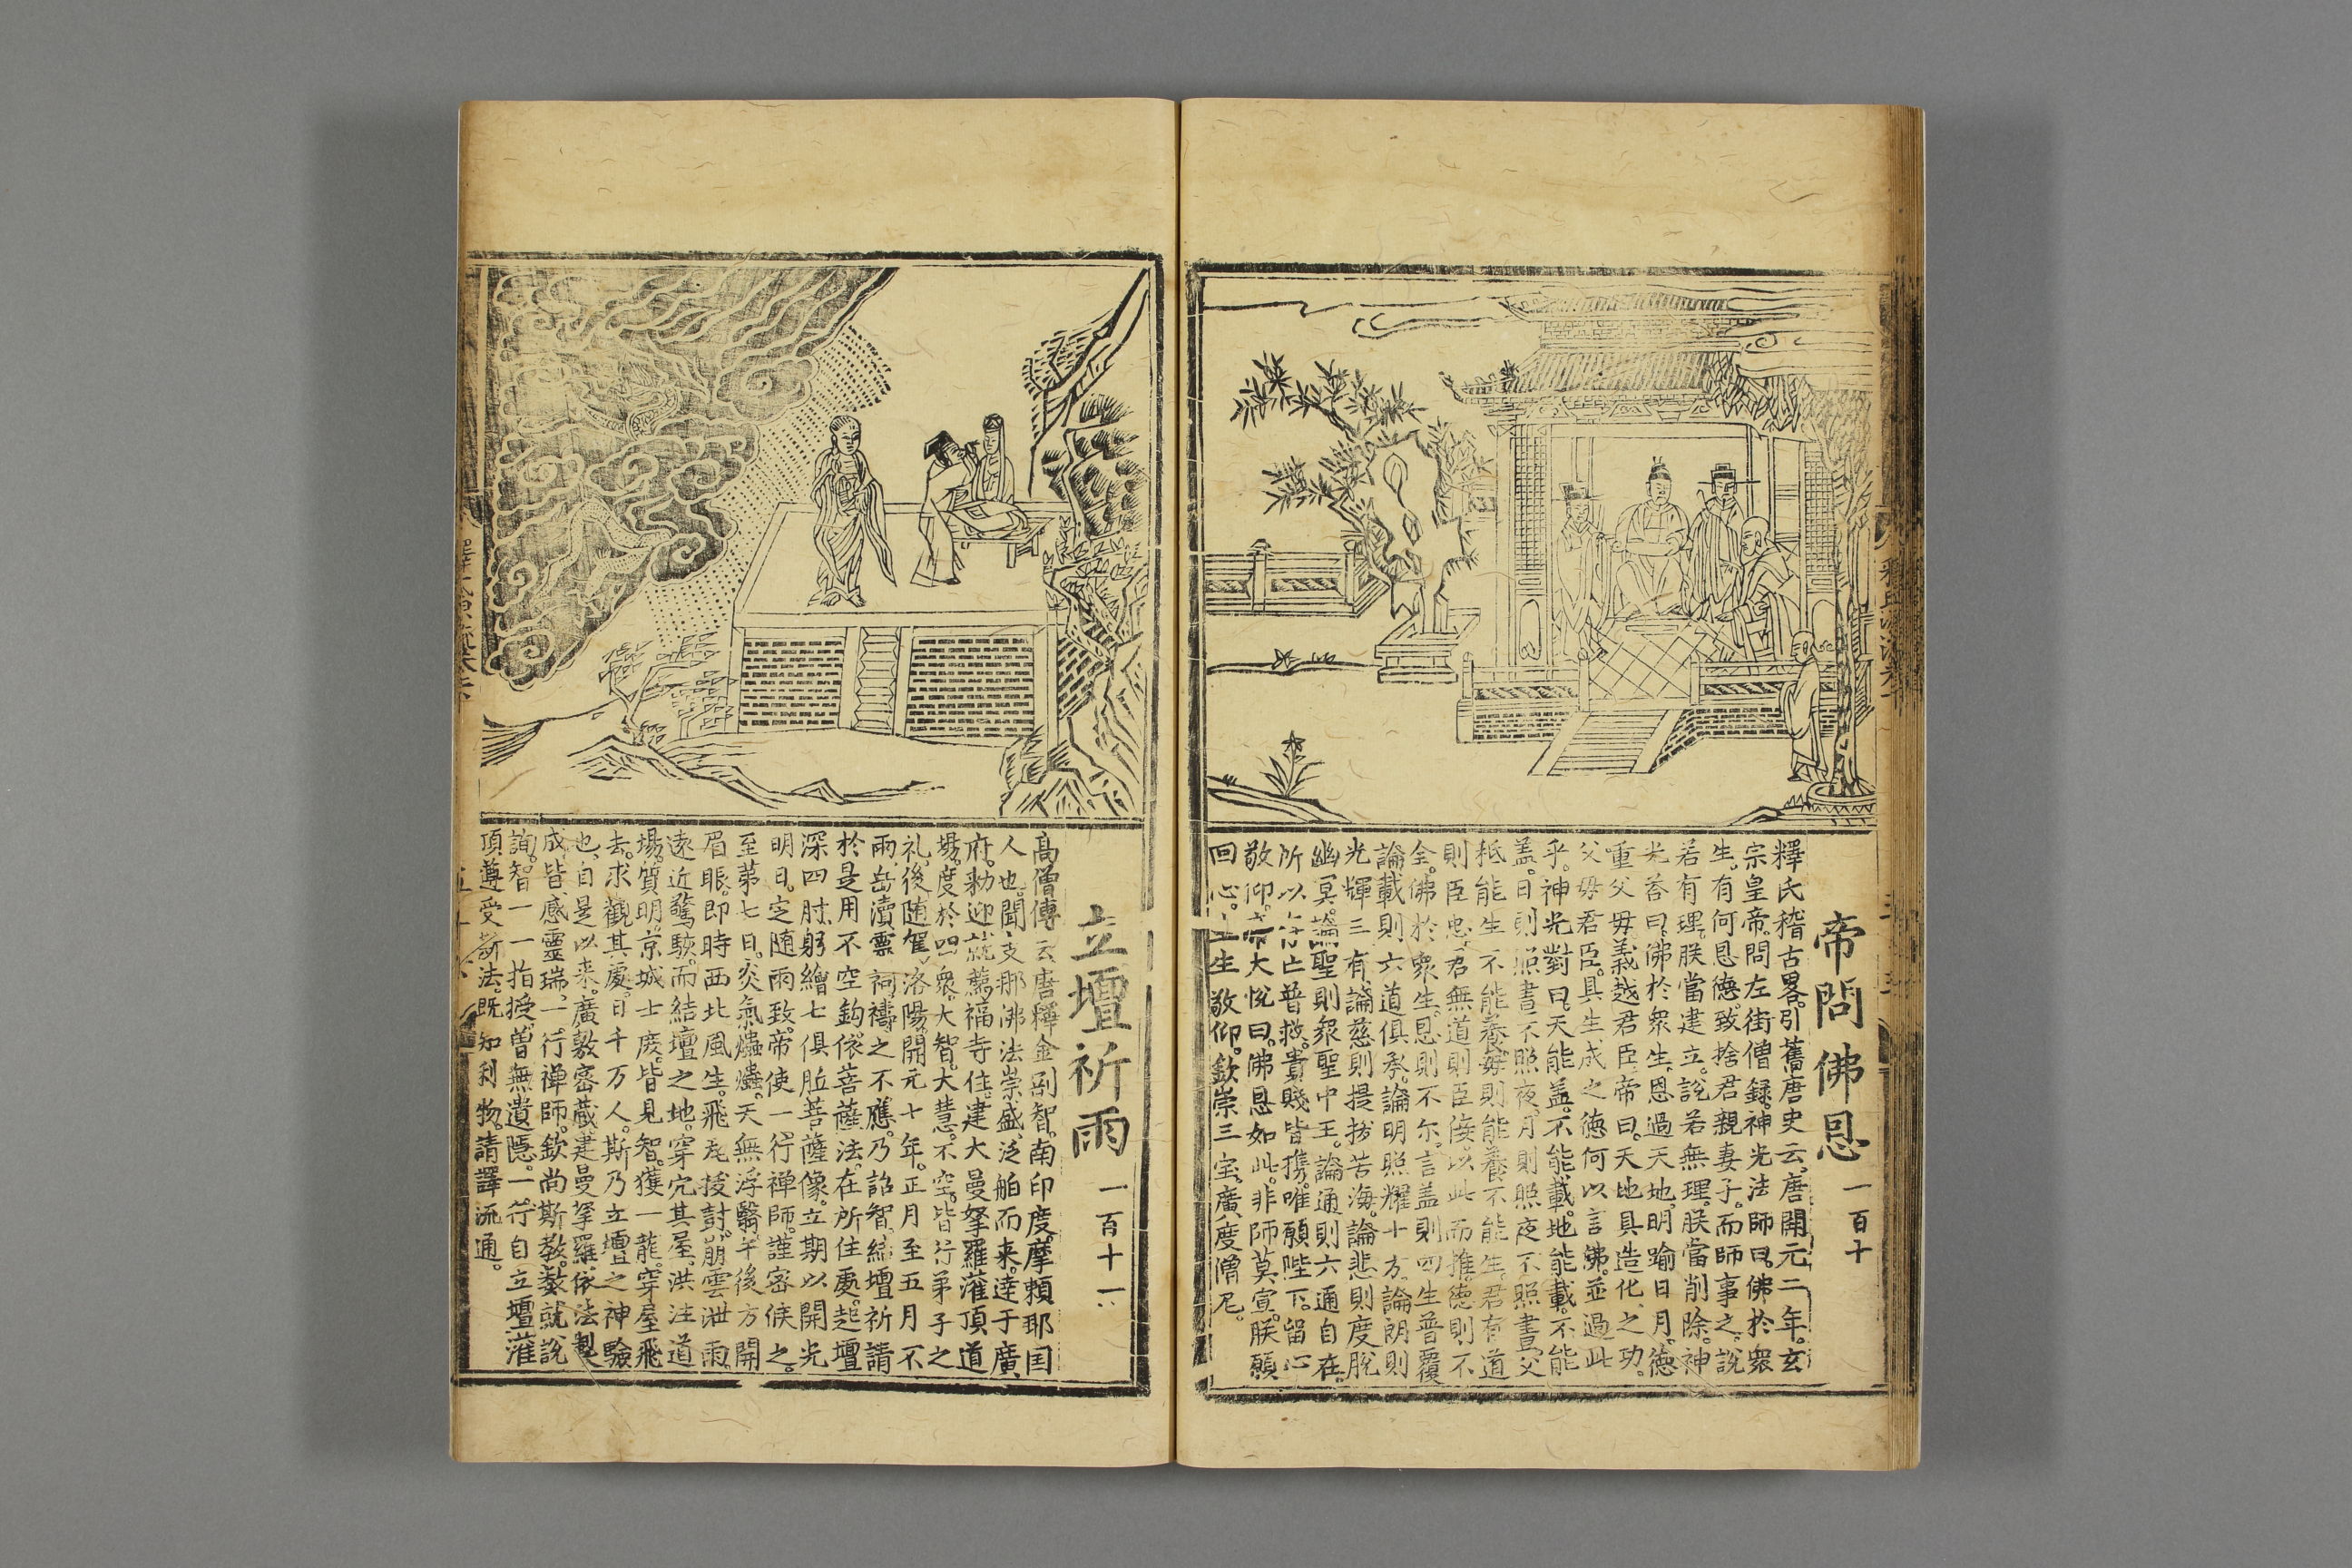 帝問佛恩 一百十
釋氏稽古畧。引舊唐史云。唐開元二年。玄
宗皇帝。問左街僧録。神光法師曰。佛於衆
生。有何恩德。致捨君親妻子。而師事之。說
若有理。朕當建立。說若無理。朕當削除。神
光荅曰。佛於衆生。恩過天地。明踰日月。德
重父毋。義越君臣。帝曰。天地具造化之功。
父毋君臣。具生成之德何以言佛。並過此
乎。神光對曰。天能盖。不能載。地能載。不能
盖。日則照晝不照夜。月則照夜不照晝。父
秪能生不能養。毋則能養不能生。君有道
則臣忠。君無道則臣佞。以此而推。德則不
全。佛於衆生。恩則不尓。言盖則四生普覆
論載則六道俱承。論明照耀十方。論朗則
光輝三有。論慈則提拔苦海。論悲則度脫
幽冥。論聖則衆聖中王。論通則六通自在。
所以存亡普救。貴賤皆擕。唯願陛下。留心
敬仰。帝大悅曰。佛恩如此。非師莫宣。朕願
回心。生生敬仰。欽崇三宝。廣度僧尼。
立壇祈雨 一百十一
高僧傳云。唐釋金剛智。南印度。摩頼耶国
人也。聞支那佛法崇盛。泛舶而来。逹于廣
府。勑迎就薦福寺住。建大曼拏羅灌頂道
場。度於四衆。大智。大慧。不空。皆行弟子之
礼。後随駕洛陽。開元七年。正月至五月不
雨。岳瀆靈祠。禱之不應。乃詔智結壇祈請
於是用不空鈎。依菩薩法。在所住處。起壇
深四肘。躬繪七俱胝菩薩像。立期以開光
明日。定随雨致。帝使一行禅師。謹密候之。
至第七日。炎氣爞爞。天無浮翳。午後方開
眉眼。即時西北風生。飛瓦拔封。崩雲泄雨。
遠近驚駭。而結壇之地。穿宂其屋。洪注道
場。質明。京城士庻。皆見智獲一龍。穿屋飛
去。求觀其處。日千万人。斯乃立壇之神驗
也。自是以来。廣敷密蔵。建曼拏羅。依法製
成。皆感靈瑞。一行禅師。欽尚斯教。數就諮
詢。智一一指授。曽無遺隱。一行自立壇灌
頂。遵受斯法。既知利物。請譯流通。